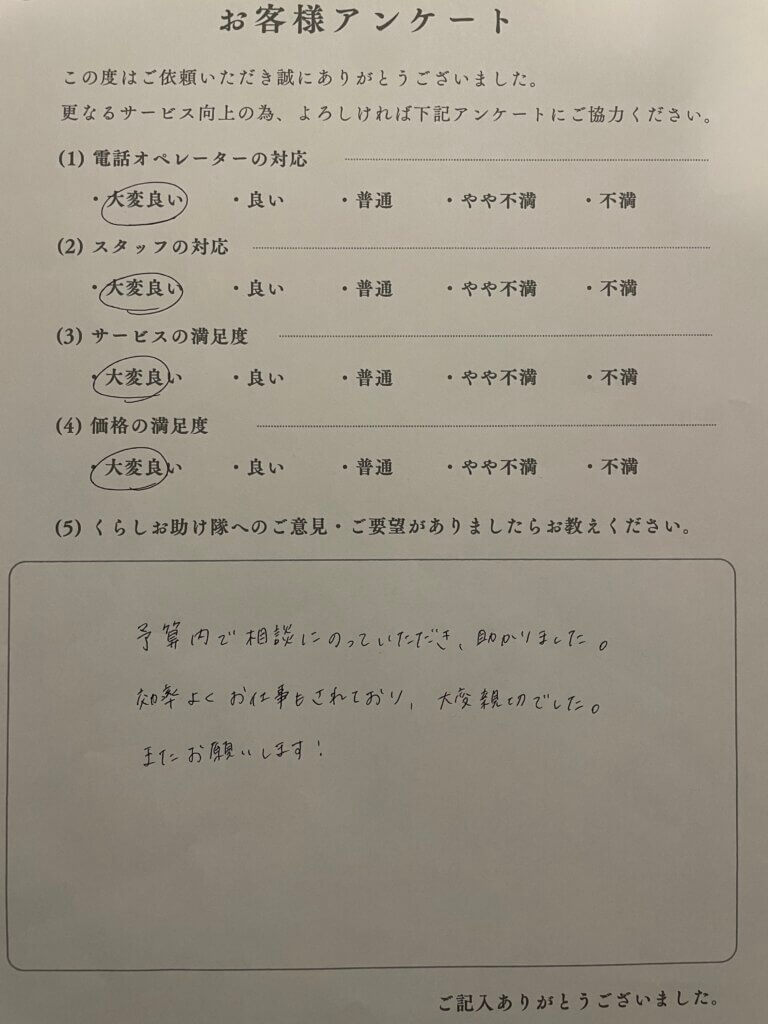 お客様アンケート
この度はご依頼いただき誠にありがとうございました。
更なるサービス向上の為、よろしければ下記アンケートにご協力ください。
(1) 電話オペレーターの対応
・大変良い ・良い ・普通 ・やや不満 ・不満
(2) スタッフの対応
・大変良い ・良い ・普通 ・やや不満 ・不満
(3) サービスの満足度
・大変良い ・良い ・普通 ・やや不満 ・不満
(4) 価格の満足度
・大変良い ・良い ・普通 ・やや不満 ・不満
(5) くらしお助け隊へのご意見・ご要望がありましたらお教えください。
予算内で相談にのっていただき、助かりました。
効率よくお仕事もされており、大変親切でした。
またお願いします!
ご記入ありがとうございました。